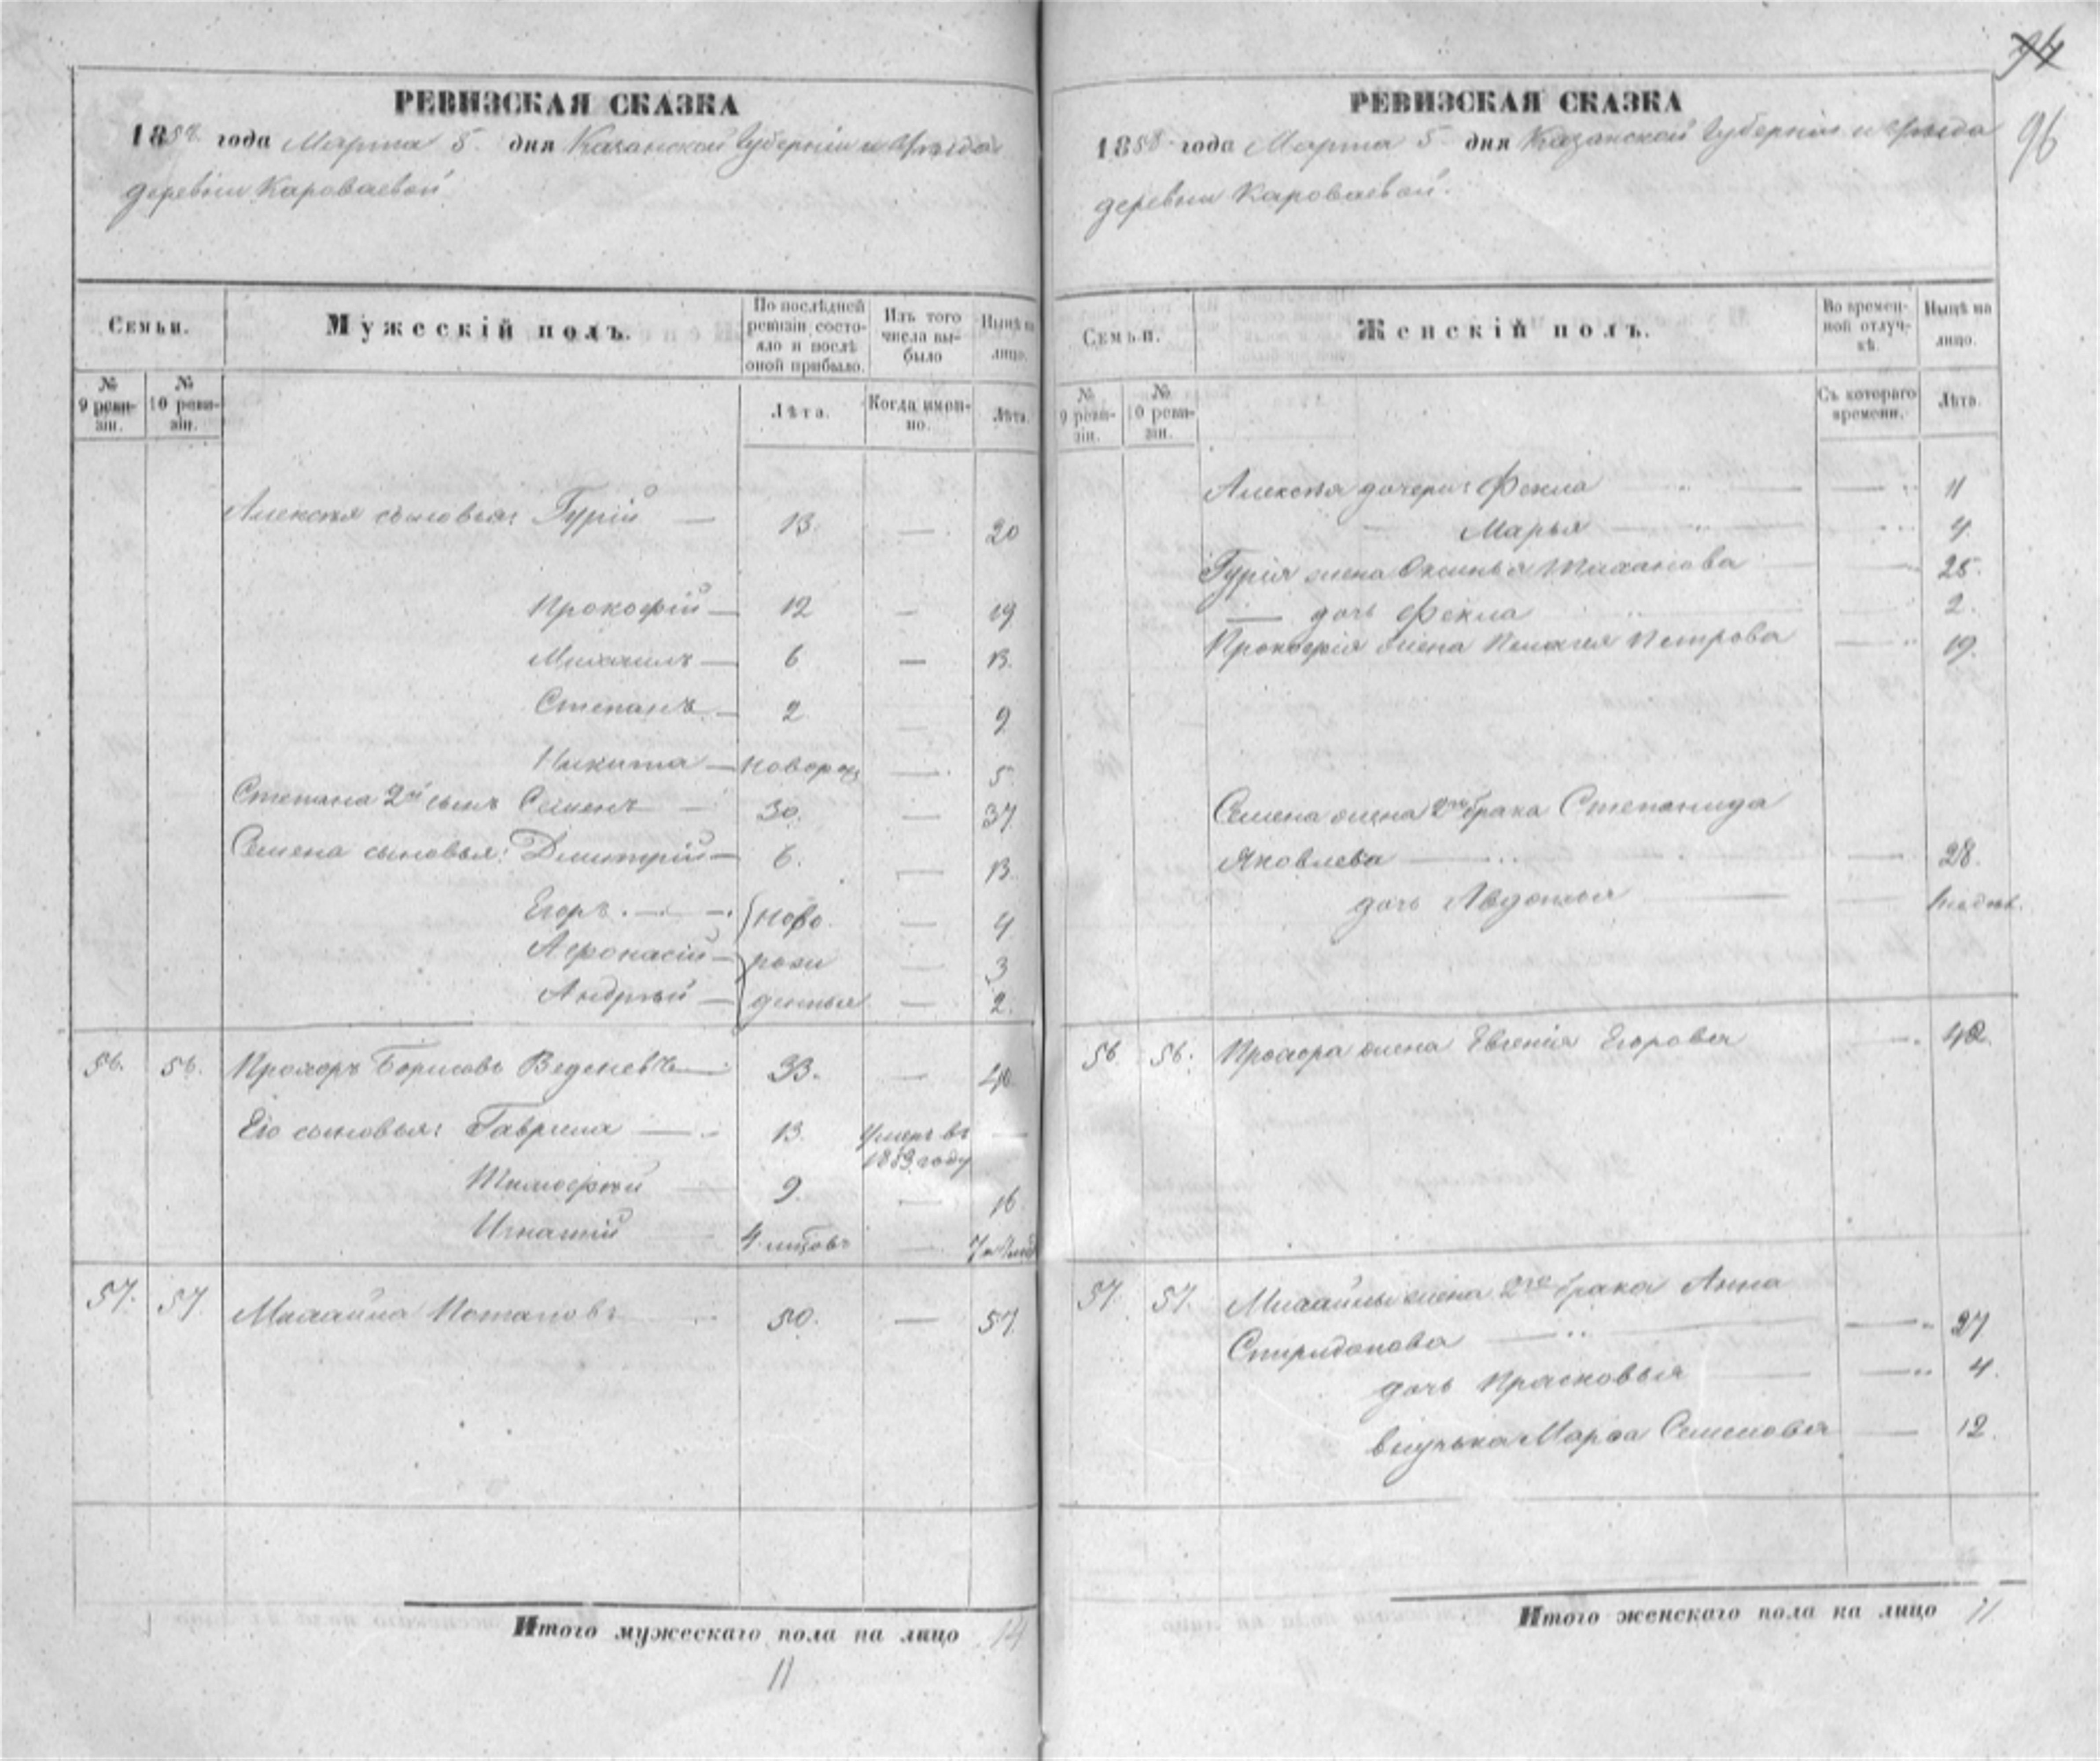 94
96
РЕВИЗСКАЯ СКАЗКА
1858 года Марта 5 дня Казанской Губерніи и Уѣзда
деревни Караваевой
Семьи.
Мужескій полъ.
По послѣдней ревизіи состояло и послѣ оной прибыло.
Изъ того числа выбыло
Нынѣ на лицо.
№ 9 ревизіи.
№ 10 ревизіи.
Лѣта.
Когда именно.
Лѣта.
Алексѣя сыновья: Гурій — 13. — 20
Прокофій — 12 — 19
Михаилъ — 6 — 13.
Степанъ — 2 — 9
Никита — новорож — 5
Степана 2й сынъ Семенъ — 30. — 37
Семена сыновья: Дмитрій — 6. — 13.
Егоръ — ново — 4
Афонасій — рож — 3
Андрей — денные — 2.
56. 56. Прохоръ Борисовъ Веденевъ — 33. — 40
Его сыновья: Гаврила — 13. Умеръ въ —
1853 году
Тимофей — 9. — 16
Игнатій — 4 мцовъ —
57. 57 Михайла Потаповъ — 50. — 57
Итого мужескаго пола на лицо 14
11
РЕВИЗСКАЯ СКАЗКА
1858 года Марта 5 дня Казанской Губерніи и Уѣзда
деревни Караваевой.
Семьи.
Женскій полъ.
Во временной отлучкѣ.
Нынѣ на лицо.
№ 9 ревизіи.
№ 10 ревизіи.
Съ котораго времени.
Лѣта.
Алексѣя дочери: Фекла — — 11
Марья — 4
Гурія жена Оксинья — 25.
— дочь Фекла — 2.
Прокофія жена Пелагея Петрова — 19.
Семена жена 2го брака Степанида
Яковлева — — 28.
дочь Авдотья — —
56 56. Прохора жена Евгенія Егорова — 40.
57. 57. Михайлы жена 2го брака Анна
Спиридонова — — 27
дочь Прасковья — — 4.
внучька Марфа Семенова — 12.
Итого женскаго пола на лицо 11